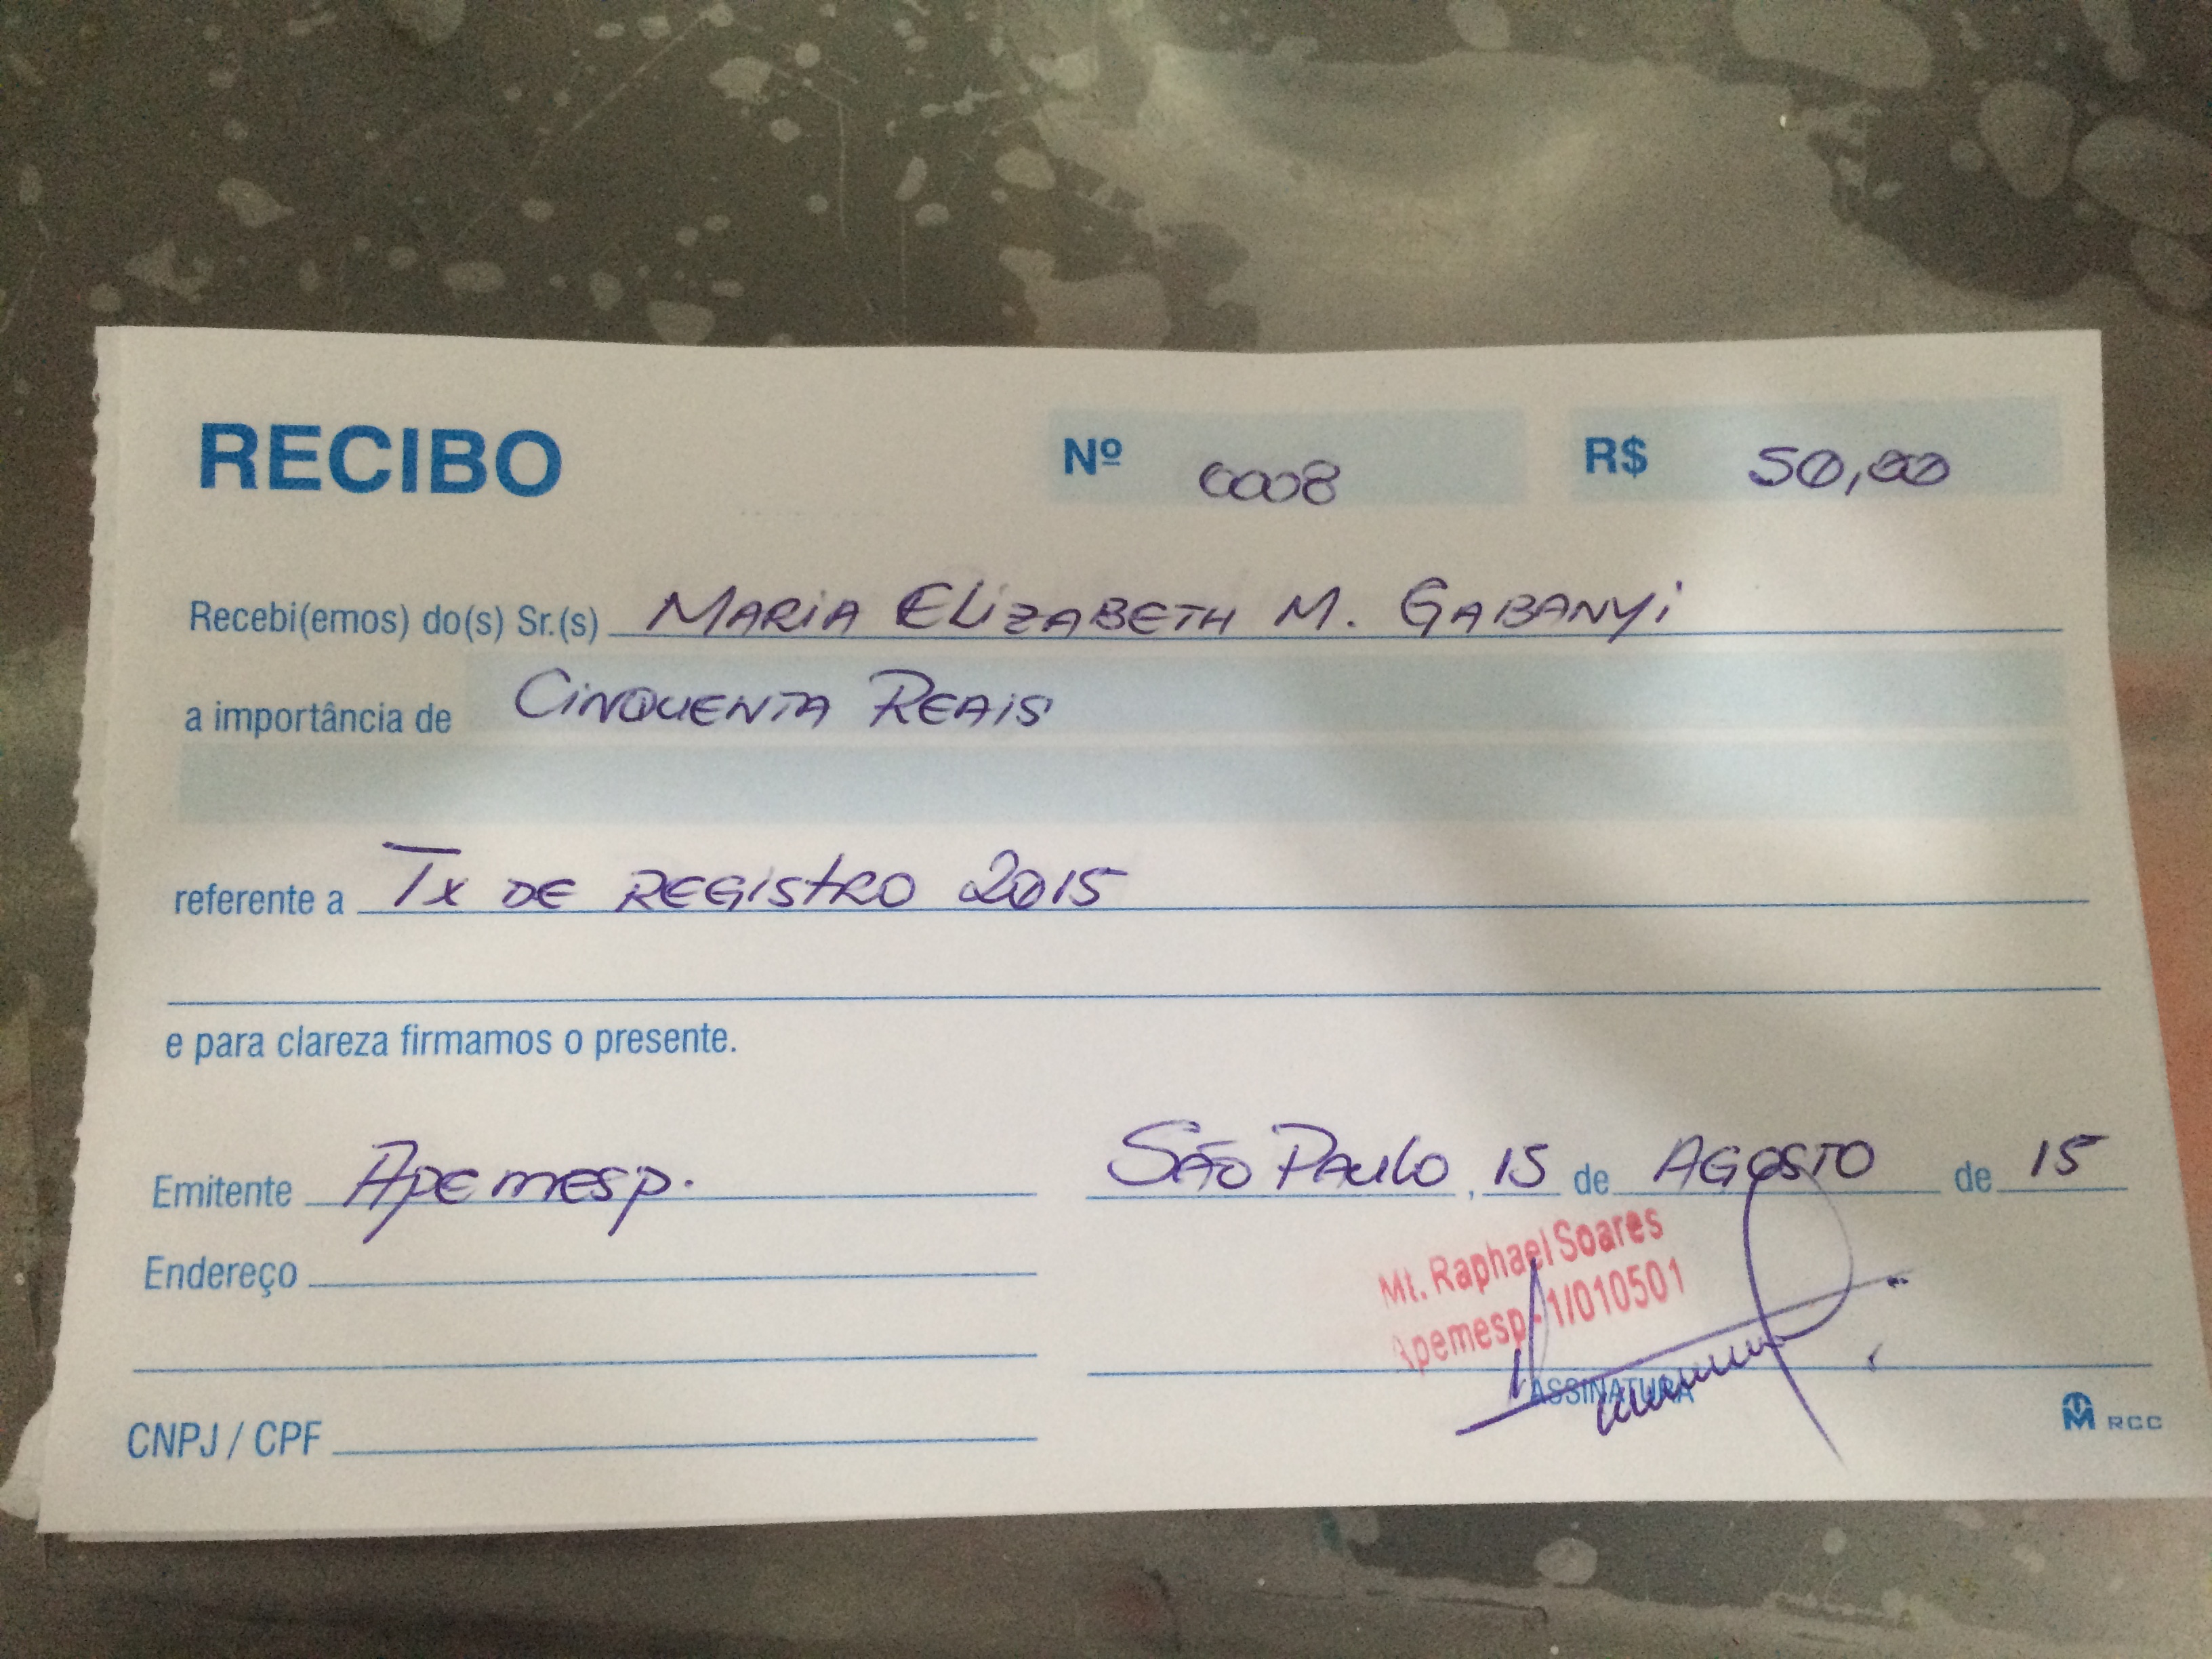 RECIBO Nº 0008 R$ 50,00
Recebi(emos) do(s) Sr.(s) MARIA ELIZABETH M. GABANYI
a importância de CINQUENTA REAIS
referente a TX DE REGISTRO 2015
e para clareza firmamos o presente.
Emitente Apemesp. SÃO PAULO, 15 de AGOSTO de 15
Endereço
Mt. Raphael Soares
Apemesp - 1/010501
ASSINATURA
CNPJ / CPF
RCC